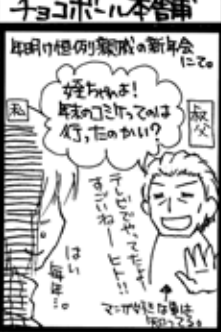 チョコボール本舗
年明け恒例親戚の新年会
にて。
姪ちゃんよ！
年末のコミケってのは
行ったのかい？
私
叔父
テレビでやってたよー
すごいねーヒト!!
はい
毎年…。
マンガ好きな事は
知ってる。